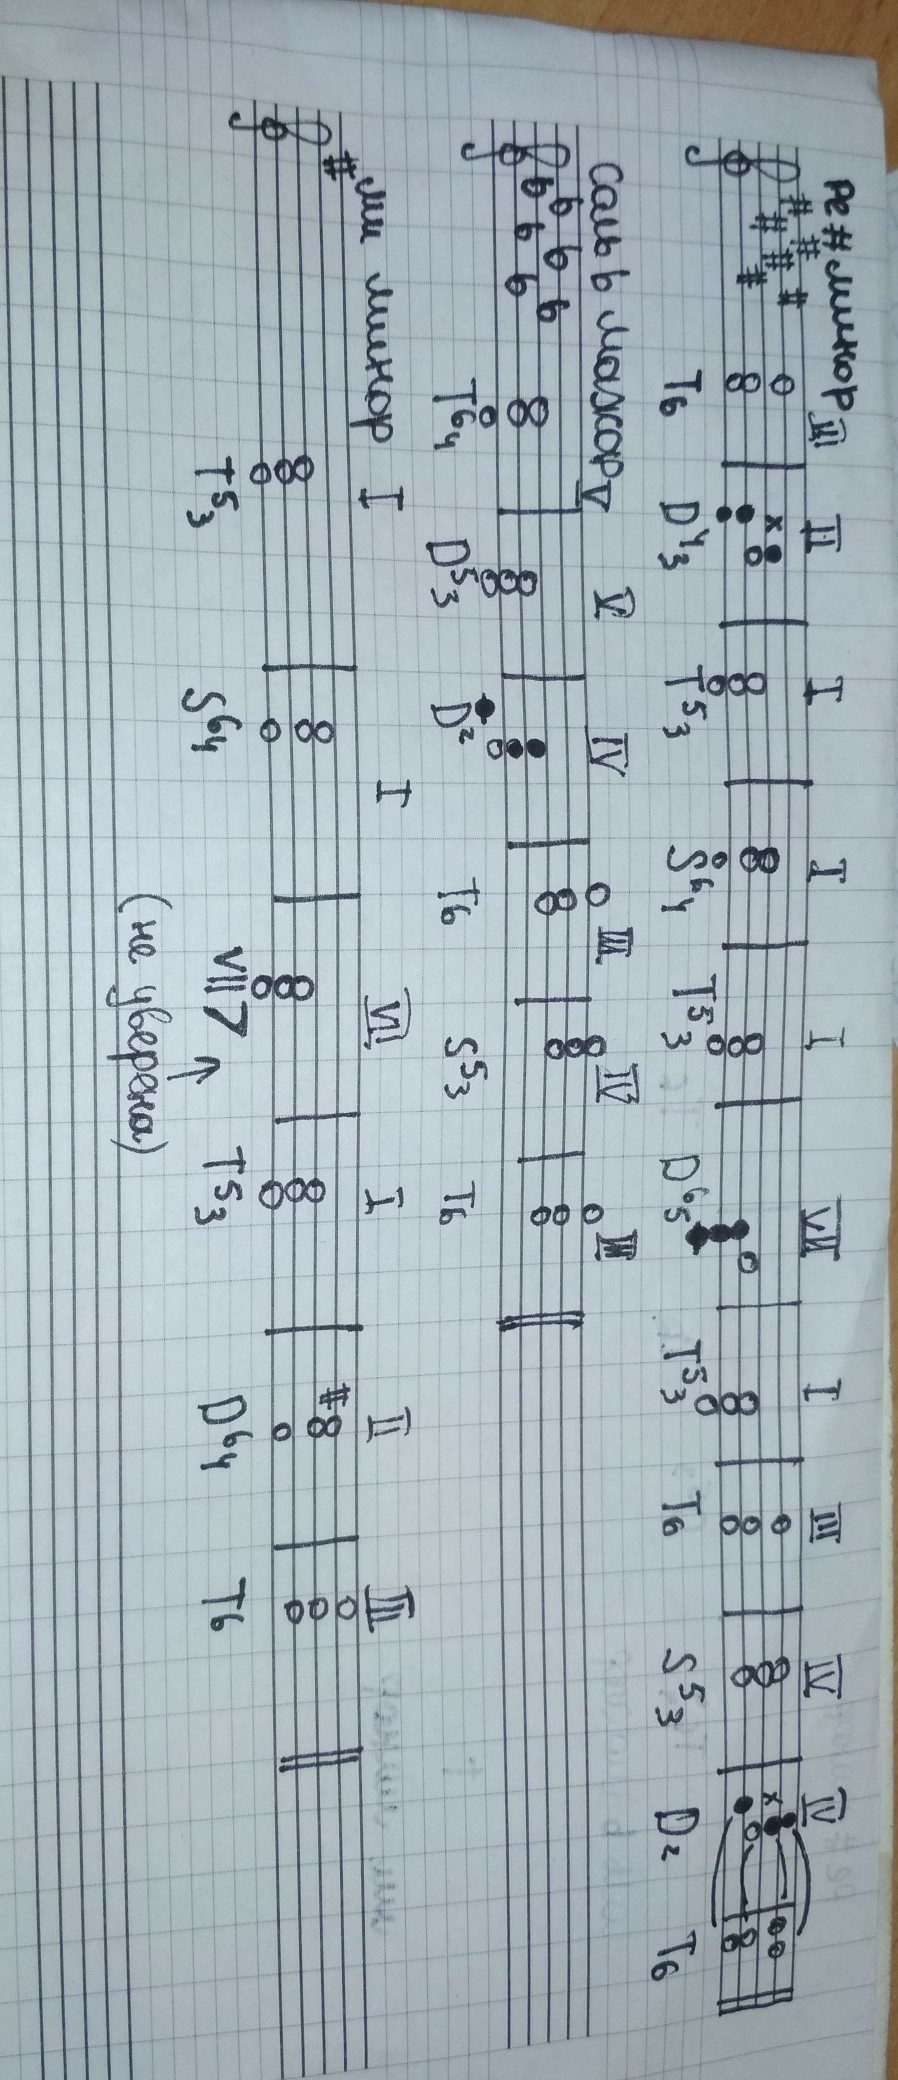 ре # минор III II I I I VII I III IV IV
T6 D43 T53 S64 T53 D65 T53 T6 S53 D2 T6
Соль b мажор V V IV III IV III
T64 D53 D2 T6 S53 T6
ми минор I I VII I II III
T53 S64 VII7 T53 D64 T6
(не уверена)